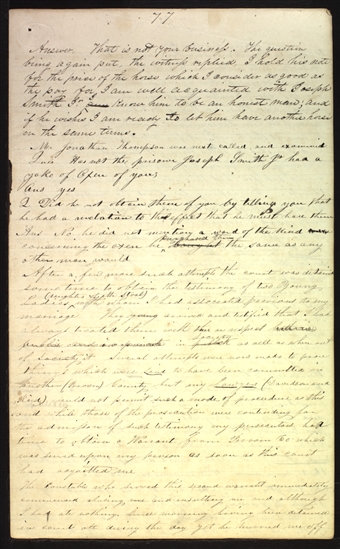 77
Answer. That is not your business. The question
being again put, the witness replied, I hold his note
for the price of the horse which I consider as good as
the pay for I am well acquainted with Joseph
Smith Jr know him to be an honest man; and
if he wishes I am ready to let him have another horse
on the same terms.
Mr. Jonathan Thompson was next called and examined
Has not the prisoner Joseph Smith Jr had a
yoke of Oxen of you;
Ans yes
Q Did he not obtain them of you by telling you that
he had a revelation to the effect that he must have them
Ans. No he did not mention a word of the kind
concerning the oxen he purchased them the same as any
other man would
After a few more such attempts the court was detained
some time to obtain the testimony of two Young
with whom I had associated previous to my
marriage They and testified that I had
always treated them with respect
as well as when out
of Society. attempts were now made to prove
things which were to have been committed in
another (Broom) County but my Lawyers (Davidson and
Reid) would not permit such a mode of procedure as this
and while those of the prosecution were contending for
the admission of such testimony my persecutors had
time to obtain a Warrant from Broom Co which
was served upon my person as soon as this court
had acquitted me
The constable who served this second warrant immediately
commenced abusing me and insulting me and although
I had ate nothing since morning having been detained
in court all during the day yet he hurried me off